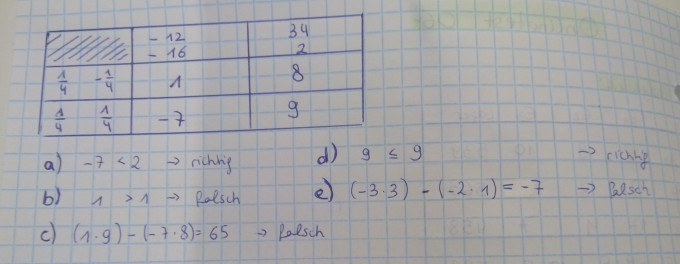 - 12 34
- 16 2
1/4 -1/4 1 8
1/4 1/4 -7 9
a) -7 < 2 → richtig
d) 9 ≤ 9 → richtig
b) 1 > 1 → falsch
e) (-3·3) - (-2·1) = -7 → falsch
c) (1·9) - (-7·8) = 65 → falsch